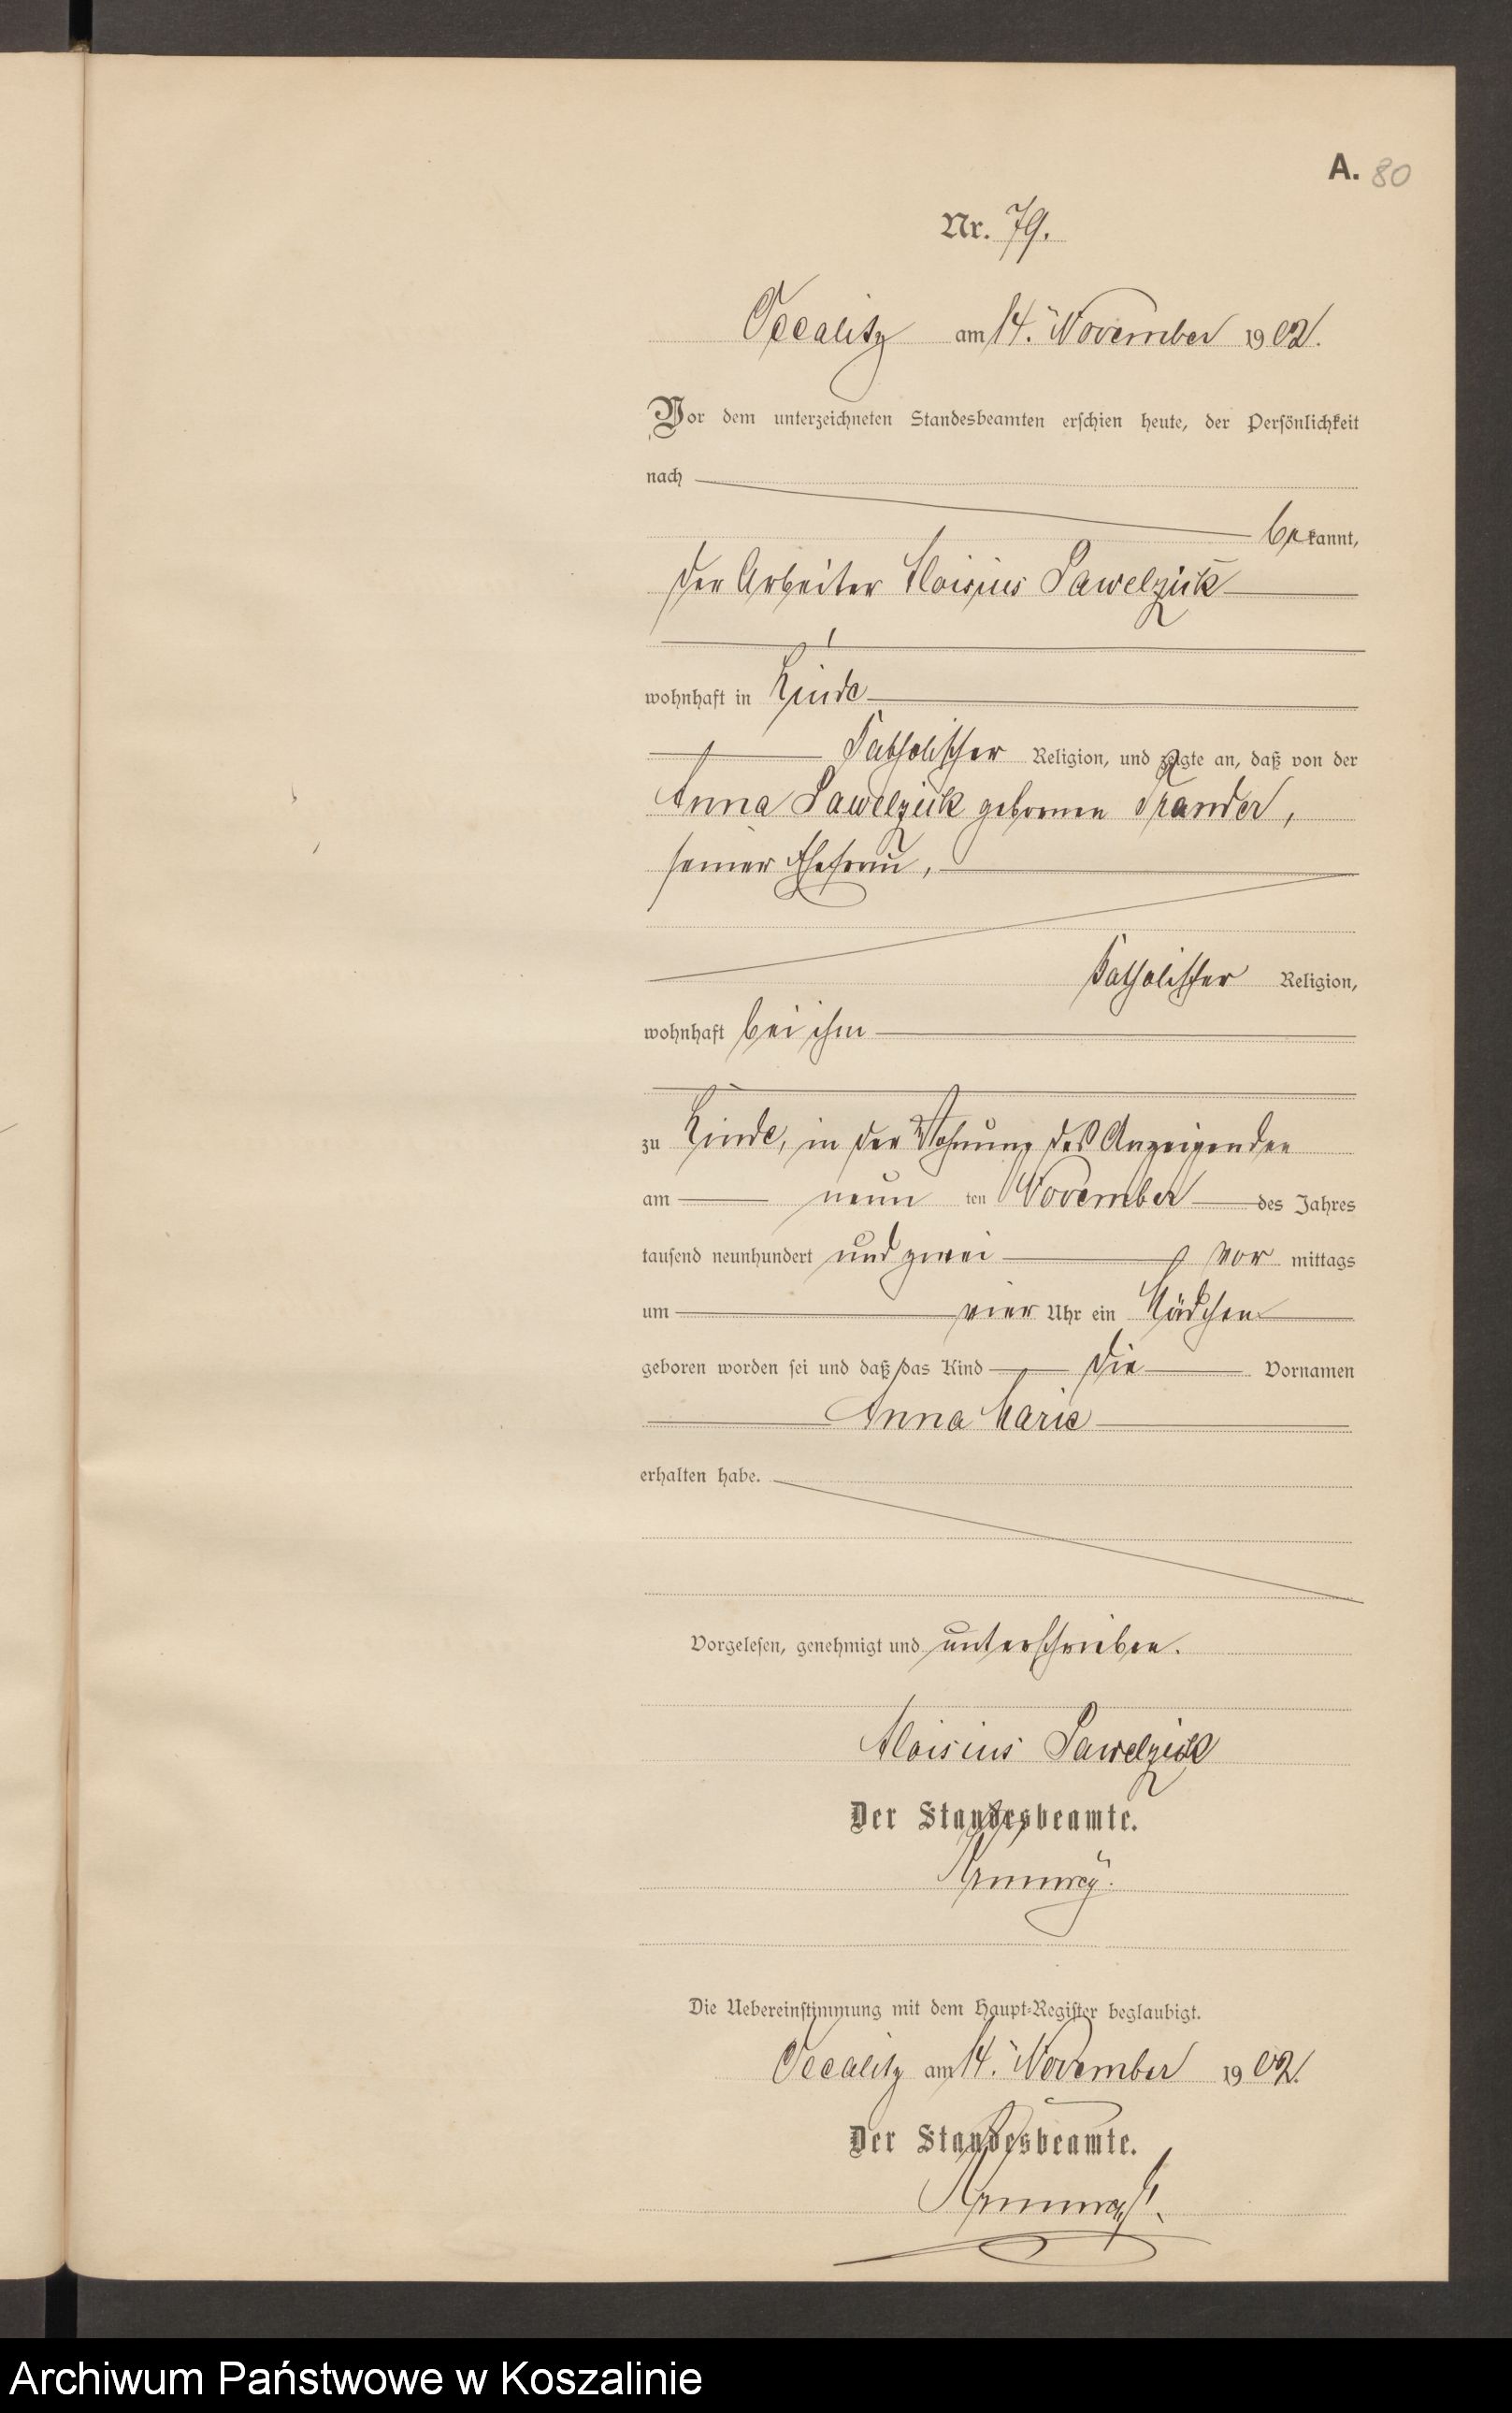 A. 80
Nr. 79.
Occalitz am 14. November 1902.
Vor dem unterzeichneten Standesbeamten erschien heute, der Persönlichkeit
nach
bekannt,
der Arbeiter Aloisius Pawelzik
wohnhaft in Linde
katholischer Religion, und zeigte an, daß von der
Anna Pawelzik geborenen
seiner Ehefrau,
katholischer Religion,
wohnhaft bei ihm
zu Linde, in der Wohnung des Anzeigenden
am neun ten November des Jahres
tausend neunhundert und zwei vor mittags
um vier Uhr ein Mädchen
geboren worden sei und daß das Kind die Vornamen
Anna Marie
erhalten habe.
Vorgelesen, genehmigt und unterschrieben.
Aloisius Pawelzik
Der Standesbeamte.
Die Uebereinstimmung mit dem Haupt-Register beglaubigt.
Occalitz am 14. November 1902.
Der Standesbeamte.
Archiwum Państwowe w Koszalinie